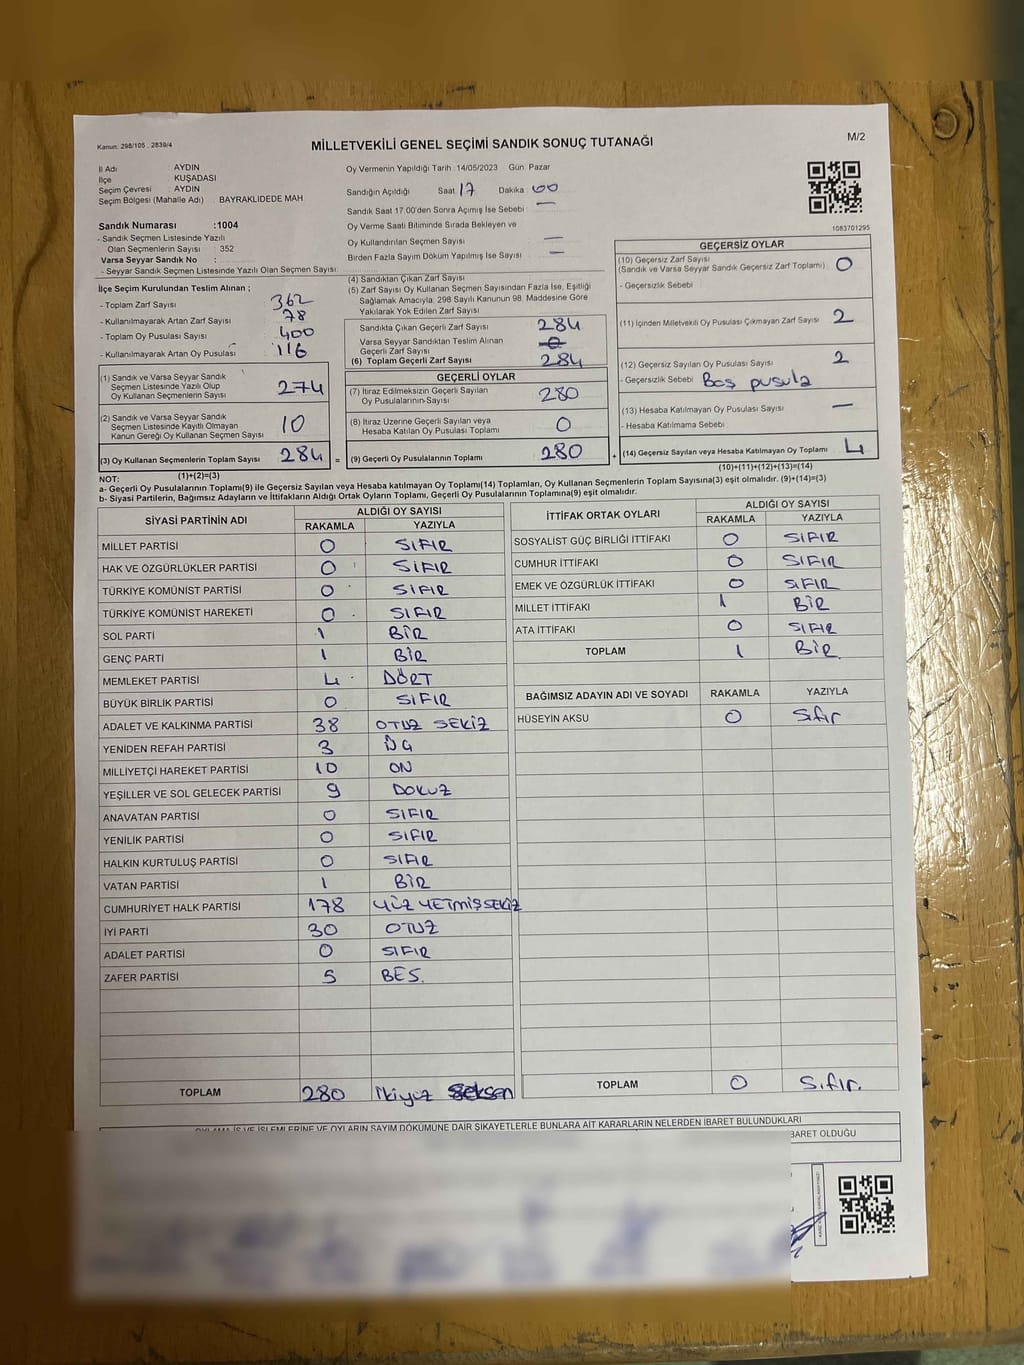 Kanun: 298/105 , 2839/4
MİLLETVEKİLİ GENEL SEÇİMİ SANDIK SONUÇ TUTANAĞI
M/2
İl Adı AYDIN
İlçe KUŞADASI
Seçim Çevresi : AYDIN
Seçim Bölgesi (Mahalle Adı) BAYRAKLIDEDE MAH
Sandık Numarası :1004
- Sandık Seçmen Listesinde Yazılı
Olan Seçmenlerin Sayısı : 352
Varsa Seyyar Sandık No :
- Seyyar Sandık Seçmen Listesinde Yazılı Olan Seçmen Sayısı:
Oy Vermenin Yapıldığı Tarih :14/05/2023 Gün: Pazar
Sandığın Açıldığı Saat 17 Dakika 00
Sandık Saat 17.00'den Sonra Açımış İse Sebebi : —
Oy Verme Saati Bitiminde Sırada Bekleyen ve
Oy Kullandırılan Seçmen Sayısı —
Birden Fazla Sayım Döküm Yapılmış İse Sayısı : —
1083701295
İlçe Seçim Kurulundan Teslim Alınan ;
- Toplam Zarf Sayısı 362
- Kullanılmayarak Artan Zarf Sayısı 78
- Toplam Oy Pusulası Sayısı 400
- Kullanılmayarak Artan Oy Pusulası 116
(1) Sandık ve Varsa Seyyar Sandık
Seçmen Listesinde Yazılı Olup
Oy Kullanan Seçmenlerin Sayısı 274
(2) Sandık ve Varsa Seyyar Sandık
Seçmen Listesinde Kayıtlı Olmayan
Kanun Gereği Oy Kullanan Seçmen Sayısı 10
(3) Oy Kullanan Seçmenlerin Toplam Sayısı 284 =
(4) Sandıktan Çıkan Zarf Sayısı
(5) Zarf Sayısı Oy Kullanan Seçmen Sayısından Fazla İse, Eşitliği
Sağlamak Amacıyla, 298 Sayılı Kanunun 98. Maddesine Göre
Yakılarak Yok Edilen Zarf Sayısı
Sandıkta Çıkan Geçerli Zarf Sayısı 284
Varsa Seyyar Sandıktan Teslim Alınan
Geçerli Zarf Sayısı
(6) Toplam Geçerli Zarf Sayısı 284
GEÇERLİ OYLAR
(7) İtiraz Edilmeksizin Geçerli Sayılan
Oy Pusulalarının Sayısı 280
(8) İtiraz Üzerine Geçerli Sayılan veya
Hesaba Katılan Oy Pusulası Toplamı 0
(9) Geçerli Oy Pusulalarının Toplamı 280 +
GEÇERSİZ OYLAR
(10) Geçersiz Zarf Sayısı
(Sandık ve Varsa Seyyar Sandık Geçersiz Zarf Toplamı) 0
- Geçersizlik Sebebi
(11) İçinden Milletvekili Oy Pusulası Çıkmayan Zarf Sayısı 2
(12) Geçersiz Sayılan Oy Pusulası Sayısı 2
- Geçersizlik Sebebi Boş pusula
(13) Hesaba Katılmayan Oy Pusulası Sayısı —
- Hesaba Katılmama Sebebi
(14) Geçersiz Sayılan veya Hesaba Katılmayan Oy Toplamı 4
NOT: (1)+(2)=(3) (10)+(11)+(12)+(13)=(14)
a- Geçerli Oy Pusulalarının Toplamı(9) ile Geçersiz Sayılan veya Hesaba Katılmayan Oy Toplamı(14) Toplamları, Oy Kullanan Seçmenlerin Toplam Sayısına(3) eşit olmalıdır. (9)+(14)=(3)
b- Siyasi Partilerin, Bağımsız Adayların ve İttifakların Aldığı Ortak Oyların Toplamı, Geçerli Oy Pusulalarının Toplamına(9) eşit olmalıdır.
SİYASİ PARTİNİN ADI ALDIĞI OY SAYISI
RAKAMLA YAZIYLA
MİLLET PARTİSİ 0 SIFIR
HAK VE ÖZGÜRLÜKLER PARTİSİ 0 SIFIR
TÜRKİYE KOMÜNİST PARTİSİ 0 SIFIR
TÜRKİYE KOMÜNİST HAREKETİ 0 SIFIR
SOL PARTİ 1 BİR
GENÇ PARTİ 1 BİR
MEMLEKET PARTİSİ 4 DÖRT
BÜYÜK BİRLİK PARTİSİ 0 SIFIR
ADALET VE KALKINMA PARTİSİ 38 OTUZ SEKİZ
YENİDEN REFAH PARTİSİ 3 ÜÇ
MİLLİYETÇİ HAREKET PARTİSİ 10 ON
YEŞİLLER VE SOL GELECEK PARTİSİ 9 DOKUZ
ANAVATAN PARTİSİ 0 SIFIR
YENİLİK PARTİSİ 0 SIFIR
HALKIN KURTULUŞ PARTİSİ 0 SIFIR
VATAN PARTİSİ 1 BİR
CUMHURİYET HALK PARTİSİ 178 YÜZ YETMİŞSEKİZ
İYİ PARTİ 30 OTUZ
ADALET PARTİSİ 0 SIFIR
ZAFER PARTİSİ 5 BEŞ.
TOPLAM 280 İkiyüz seksen
İTTİFAK ORTAK OYLARI ALDIĞI OY SAYISI
RAKAMLA YAZIYLA
SOSYALİST GÜÇ BİRLİĞİ İTTİFAKI 0 SIFIR
CUMHUR İTTİFAKI 0 SIFIR
EMEK VE ÖZGÜRLÜK İTTİFAKI 0 SIFIR
MİLLET İTTİFAKI 1 BİR
ATA İTTİFAKI 0 SIFIR
TOPLAM 1 BİR
BAĞIMSIZ ADAYIN ADI VE SOYADI RAKAMLA YAZIYLA
HÜSEYİN AKSU 0 Sıfır
TOPLAM 0 Sıfır.
OYLAMA İŞ VE İŞLEMLERİNE VE OYLARIN SAYIM DÖKÜMÜNE DAİR ŞİKAYETLERLE BUNLARA AİT KARARLARIN NELERDEN İBARET BULUNDUKLARI
BARET OLDUĞU